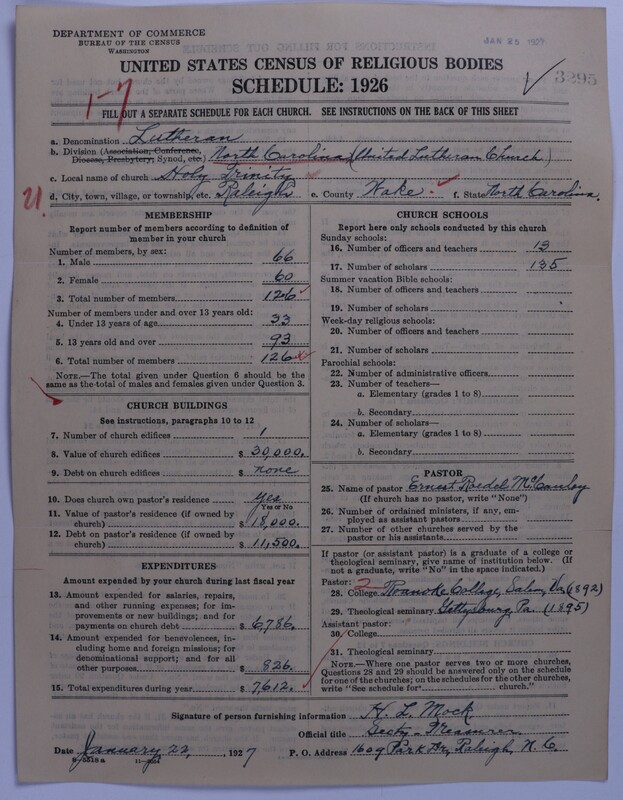 DEPARTMENT OF COMMERCE
BUREAU OF THE CENSUS
WASHINGTON
JAN 25 1927
UNITED STATES CENSUS OF RELIGIOUS BODIES
SCHEDULE: 1926
3295
1-7
FILL OUT A SEPARATE SCHEDULE FOR EACH CHURCH. SEE INSTRUCTIONS ON THE BACK OF THIS SHEET
a. Denomination Lutheran
b. Division (Association, Conference, Diocese, Presbytery, Synod, etc.) North Carolina (United Lutheran Church)
c. Local name of church Holy Trinity
d. City, town, village, or township, etc. Raleigh e. County Wake f. State North Carolina.
MEMBERSHIP
Report number of members according to definition of
member in your church
Number of members, by sex:
1. Male 66
2. Female 60
3. Total number of members 126
Number of members under and over 13 years old:
4. Under 13 years of age 33
5. 13 years old and over 93
6. Total number of members 126
NOTE.—The total given under Question 6 should be the
same as the total of males and females given under Question 3.
CHURCH BUILDINGS
See instructions, paragraphs 10 to 12
7. Number of church edifices 1
8. Value of church edifices $ 30,000.
9. Debt on church edifices $ none
10. Does church own pastor's residence Yes
Yes or No
11. Value of pastor's residence (if owned by
church) $ 18,000.
12. Debt on pastor's residence (if owned by
church) $ 11,500.
EXPENDITURES
Amount expended by your church during last fiscal year
13. Amount expended for salaries, repairs,
and other running expenses; for im-
provements or new buildings; and for
payments on church debt $ 6,786.
14. Amount expended for benevolences, in-
cluding home and foreign missions; for
denominational support; and for all
other purposes $ 826.
15. Total expenditures during year $ 7,612.
CHURCH SCHOOLS
Report here only schools conducted by this church
Sunday schools:
16. Number of officers and teachers 13
17. Number of scholars 135
Summer vacation Bible schools:
18. Number of officers and teachers
19. Number of scholars
Week-day religious schools:
20. Number of officers and teachers
21. Number of scholars
Parochial schools:
22. Number of administrative officers
23. Number of teachers—
a. Elementary (grades 1 to 8)
b. Secondary
24. Number of scholars—
a. Elementary (grades 1 to 8)
b. Secondary
PASTOR
25. Name of pastor Ernest Roedel McCauley
(If church has no pastor, write "None")
26. Number of ordained ministers, if any, em-
ployed as assistant pastors
27. Number of other churches served by the
pastor or his assistante
If pastor (or assistant pastor) is a graduate of a college or
theological seminary, give name of institution below. (If
not a graduate, write "No" in the space indicated.)
Pastor:
28. College Roanoke College, Salem, Va. (1892)
29. Theological seminary Gettysburg, Pa. (1895)
Assistant pastor:
30. College
31. Theological seminary
NOTE.—Where one pastor serves two or more churches,
Questions 28 and 29 should be answered only on the schedule
for one of the churches; on the schedules for the other churches,
write "See schedule for church."
Signature of person furnishing information H. L. Mock
Official title Secty - Treasurer
Date January 22, 1927 P. O. Address 1609 Park Dr., Raleigh, N. C.